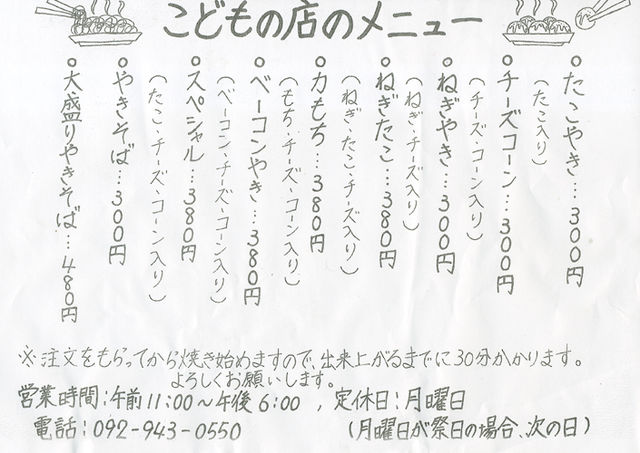 こどもの店のメニュー
○たこやき…300円
(たこ入り)
○チーズコーン…300円
(チーズ・コーン入り)
○ねぎやき…300円
(ねぎ・チーズ入り)
○ねぎたこ…380円
(ねぎ・たこ・チーズ入り)
○力もち…380円
(もち・チーズ・コーン入り)
○ベーコンやき…380円
(ベーコン・チーズ・コーン入り)
○スペシャル…380円
(たこ・チーズ・コーン入り)
○やきそば…300円
○大盛りやきそば…480円
※注文をもらってから焼き始めますので、出来上がるまでに30分かかります。
よろしくお願いします。
営業時間:午前11:00～午後6:00 , 定休日:月曜日
電話:092-943-0550 (月曜日が祭日の場合、次の日)